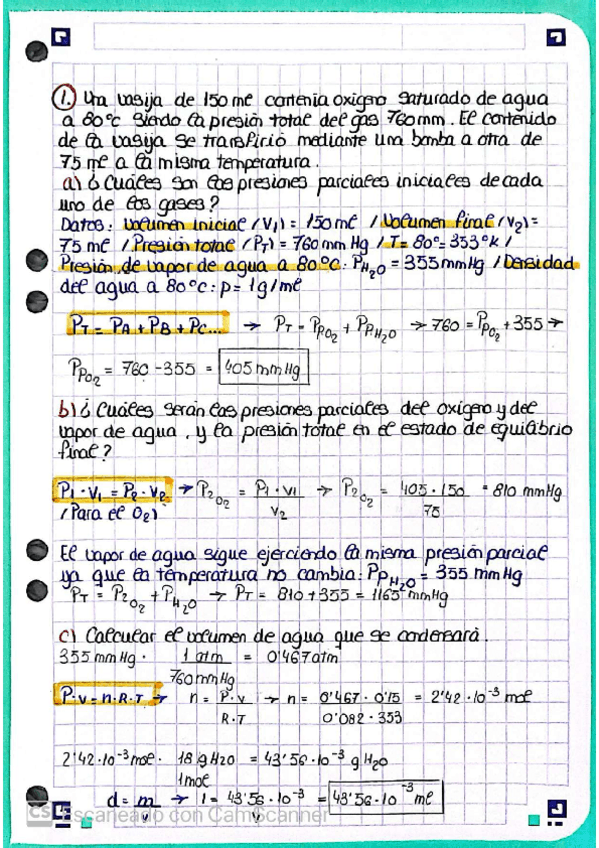 1. Una vasija de 150 ml contenia oxígeno saturado de agua
a 80°C siendo la presión total del gas 760 mm. El contenido
de la vasija se transfirió mediante una bomba a otra de
75 ml a la misma temperatura.
a) ¿Cuáles son las presiones parciales iniciales de cada
uno de los gases?
Datos: Volumen inicial (V₁) = 150 ml / Volumen final (V₂) =
75 ml / Presión total (PT) = 760 mm Hg / T = 80° = 353°K /
Presión de vapor de agua a 80°C: PH₂O = 355 mmHg / Densidad
del agua a 80°C: ρ = 1g/ml
PT = PA + PB + PC... → PT = PpO₂ + PpH₂O → 760 = PpO₂ + 355 →
PpO₂ = 760 - 355 = 405 mm Hg
b) ¿Cuáles serán las presiones parciales del oxígeno y del
vapor de agua, y la presión total en el estado de equilibrio
final?
P₁·V₁ = P₂·V₂ → P₂O₂ = P₁·V₁ / V₂ → P₂O₂ = 405·150 / 75 = 810 mmHg
(Para el O₂)
El vapor de agua sigue ejerciendo la misma presión parcial
ya que la temperatura no cambia: PpH₂O = 355 mm Hg
PT = P₂O₂ + PH₂O → PT = 810 + 355 = 1165 mm Hg
c) Calcular el volumen de agua que se condensará.
355 mm Hg · 1 atm / 760 mm Hg = 0'467 atm
P·V = n·R·T → n = P·V / R·T → n = 0'467·0'15 / 0'082·353 = 2'42·10⁻³ mol
2'42·10⁻³ mol · 18 g H₂O / 1 mol = 43'56·10⁻³ g H₂O
d = m / V → 1 = 43'56·10⁻³ / V = 43'56·10⁻³ ml
CS Escaneado con CamScanner